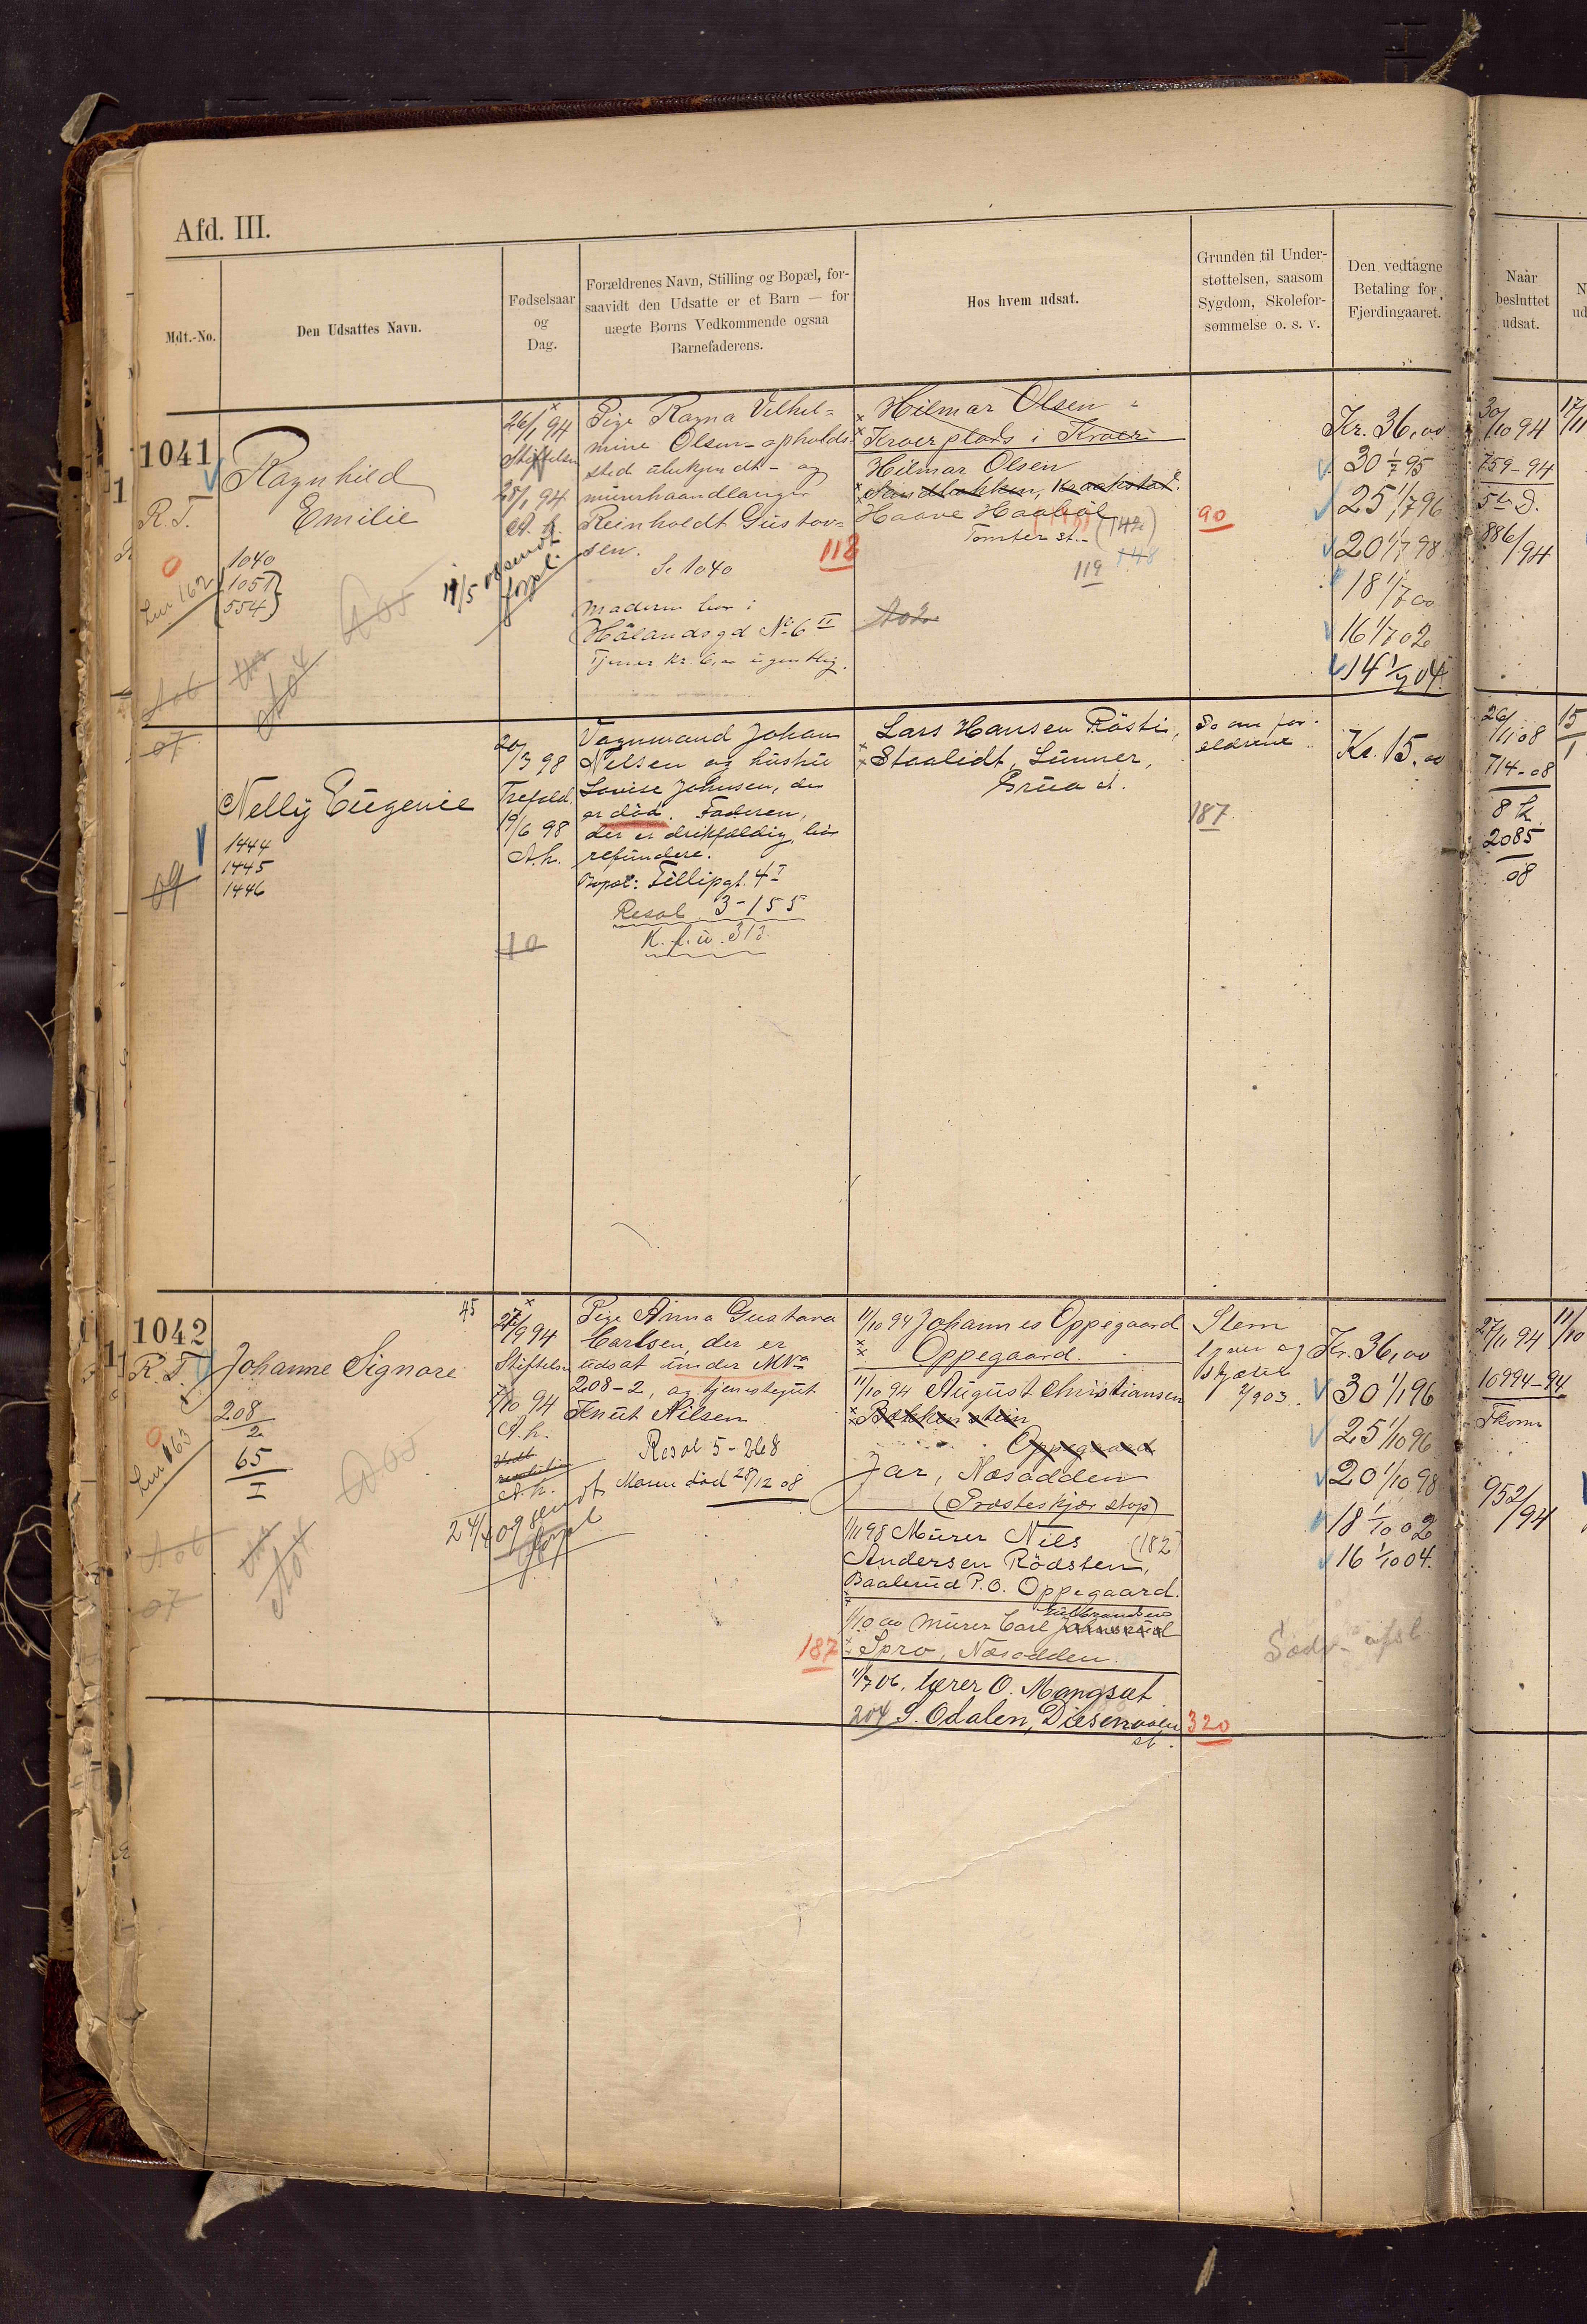 Afd. III.
Mdt.-No.
Den Udsattes Navn.
Fødselsaar
og
Dag.
Forældrenes Navn, Stilling og Bopæl, for-
saavidt den Udsatte er et Barn — for
uægte Børns Vedkommende ogsaa
Barnefaderens.
Hos hvem udsat.
Grunden til Under-
støttelsen, saasom
Sygdom, Skolefor-
sømmelse o. s. v.
Den vedtagne
Betaling for
Fjerdingaaret.
Naar
besluttet
udsat.
1041
R. T.
Ragnhild
Emilie
1040
1051
554
26/1 94
Stiftelsen
28/1 94
Pige Ragna Vilhel-
mine Olsen - opholds-
sted ubekjendt - og
murerhaandlanger
Reinholdt Gustav-
sen.
118
Se 1040
Moderen bor i
Hälandsgd No 6 II
Tjener Kr. 6,00 ugentlig.
Hilmar Olsen
Kroerplads i Kroer
Hilmar Olsen
Sandbakken, Kraakstad.
Haave Haabøl
Tomter st. (142)
148
119
90
Kr. 36,00
30 1/7 95
25 1/7 96
20 1/7 98
18 1/7 00
16 1/7 02
14 1/7 04
30/10 94
759-94
886/94
07
Nelly Eugenie
1444
1445
1446
09
20/3 98
Trefold.
19/6 98
A.h.
10
Vognmand Johan
Nelsen og hustru
Lovise Johnsen, der
er död. Faderen,
der er drikfældig, bör
refundere.
Bopæl: Fillipgt. 4 I
Resol 3-155
K. f. u. 313.
Lars Hansen Rösti,
Staalidt, Lunner,
Grua st.
So om for-
ældrene
187
Kr. 15,00
26/11 08
714-08
2085
08
1042
R. T.
45
Johanne Signore
208
2
65
I
27/9 94
Stiftelsen
7/10 94
A.h.
Pige Anna Gustava
Carlsen, der er
udsat under MNo
208-2, og tjenestegut
Knut Nilsen
Resol 5-268
Moren död 28/12 08
11/10 94 Johannes Oppegaard
Oppegaard.
11/10 94 August Christiansen
Bakkenstein
Oppegaard
Jar, Næsodden
(Presteskjær stop)
1/11 98 Murer Nils (182)
Andersen Rödsten,
Baalerud P.O. Oppegaard.
1/10 00 Murer Carl
Spro, Næsodden.
187
1/7 06. lærer O. Mangset
204 S. Odalen, Disenaaen
st.
320
2/903
Kr. 36,00
30 1/1 96
25 1/10 96
20 1/10 98
18 1/10 02
16 1/10 04.
27/11 94
10994-94
952/94